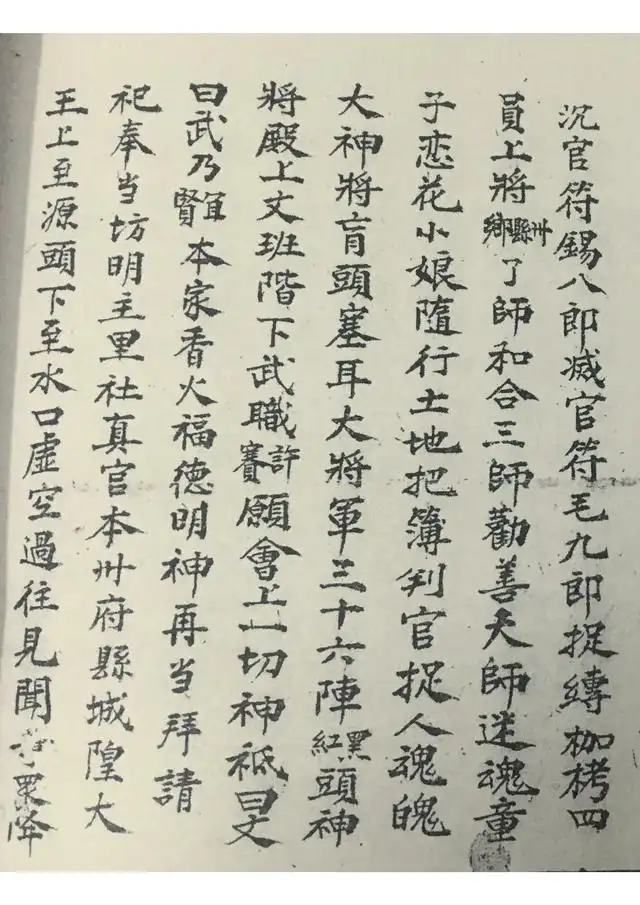 沉官符錫八郎减官符毛九郎捉縛枷栲四
員上將州縣鄉了師和合三師勸善天師迷魂童
子恋花小娘隨行土地把簿判官捉人魂魄
大神將盲頭塞耳大將軍三十六陣黑紅頭神
將殿上文班階下武職許賽願會上一切神祇曰文
曰武乃宜賢本家香火福德明神再当拜請
祀奉当坊明主里社真官本州府縣城隍大
王上至源頭下至水口虚空過往見聞衆降